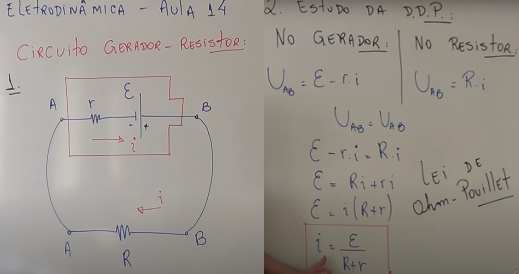 ELETRODINÂMICA - AULA 14
CIRCUITO GERADOR-RESISTOR:
1.
A r ε B
- +
i
i
A B
R
2. ESTUDO DA D.D.P.:
NO GERADOR: NO RESISTOR:
U_AB = ε - r.i U_AB = R.i
U_AB = U_AB
ε - r.i = R.i
ε = Ri + ri
ε = i(R+r)
i = ε/(R+r)
LEI DE
Ohm-Pouillet